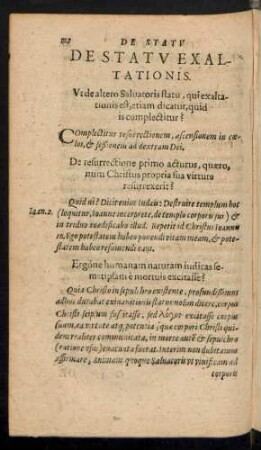 DE STATV
DE STATV EXAL-
TATIONIS.
Vt de altero Saluatoris statu, qui exalta-
tionis est, etiam dicatur, quid
is complectitur?
Complectitur resurrectionem, ascensionem in cœ-
los, & sessionem ad dextram Dei.
De resurrectione primo acturus, quæro,
num Christus propria sua virtute
resurrexerit?
Quid ni? Dicit enim Iudæis: Destruite templum hoc
(loquitur, Ioanne interprete, de templo corporis sui) &
in triduo reædificabo illud.
in, Ego potestatem habeo ponendi vitam meam, & pote-
statem habeo resumendi eam.
Ergóne humanam naturam
è mortuis excitasse?
Quia Christo in sepulchro existente, profundissimus
adhuc durabat exinanitionis status: non dicere, corpus
Christi seipsum suscitasse, sed λόγον excitasse corpus
suum, ea virtute atq; potentia, quæ corpori Christi qui-
dem realiter communicata, in morte autē & sepulchro
(ratione vsus) euacuata fuerat. Interim non dubitamus
affirmare, animam quoque Saluatoris
corporis